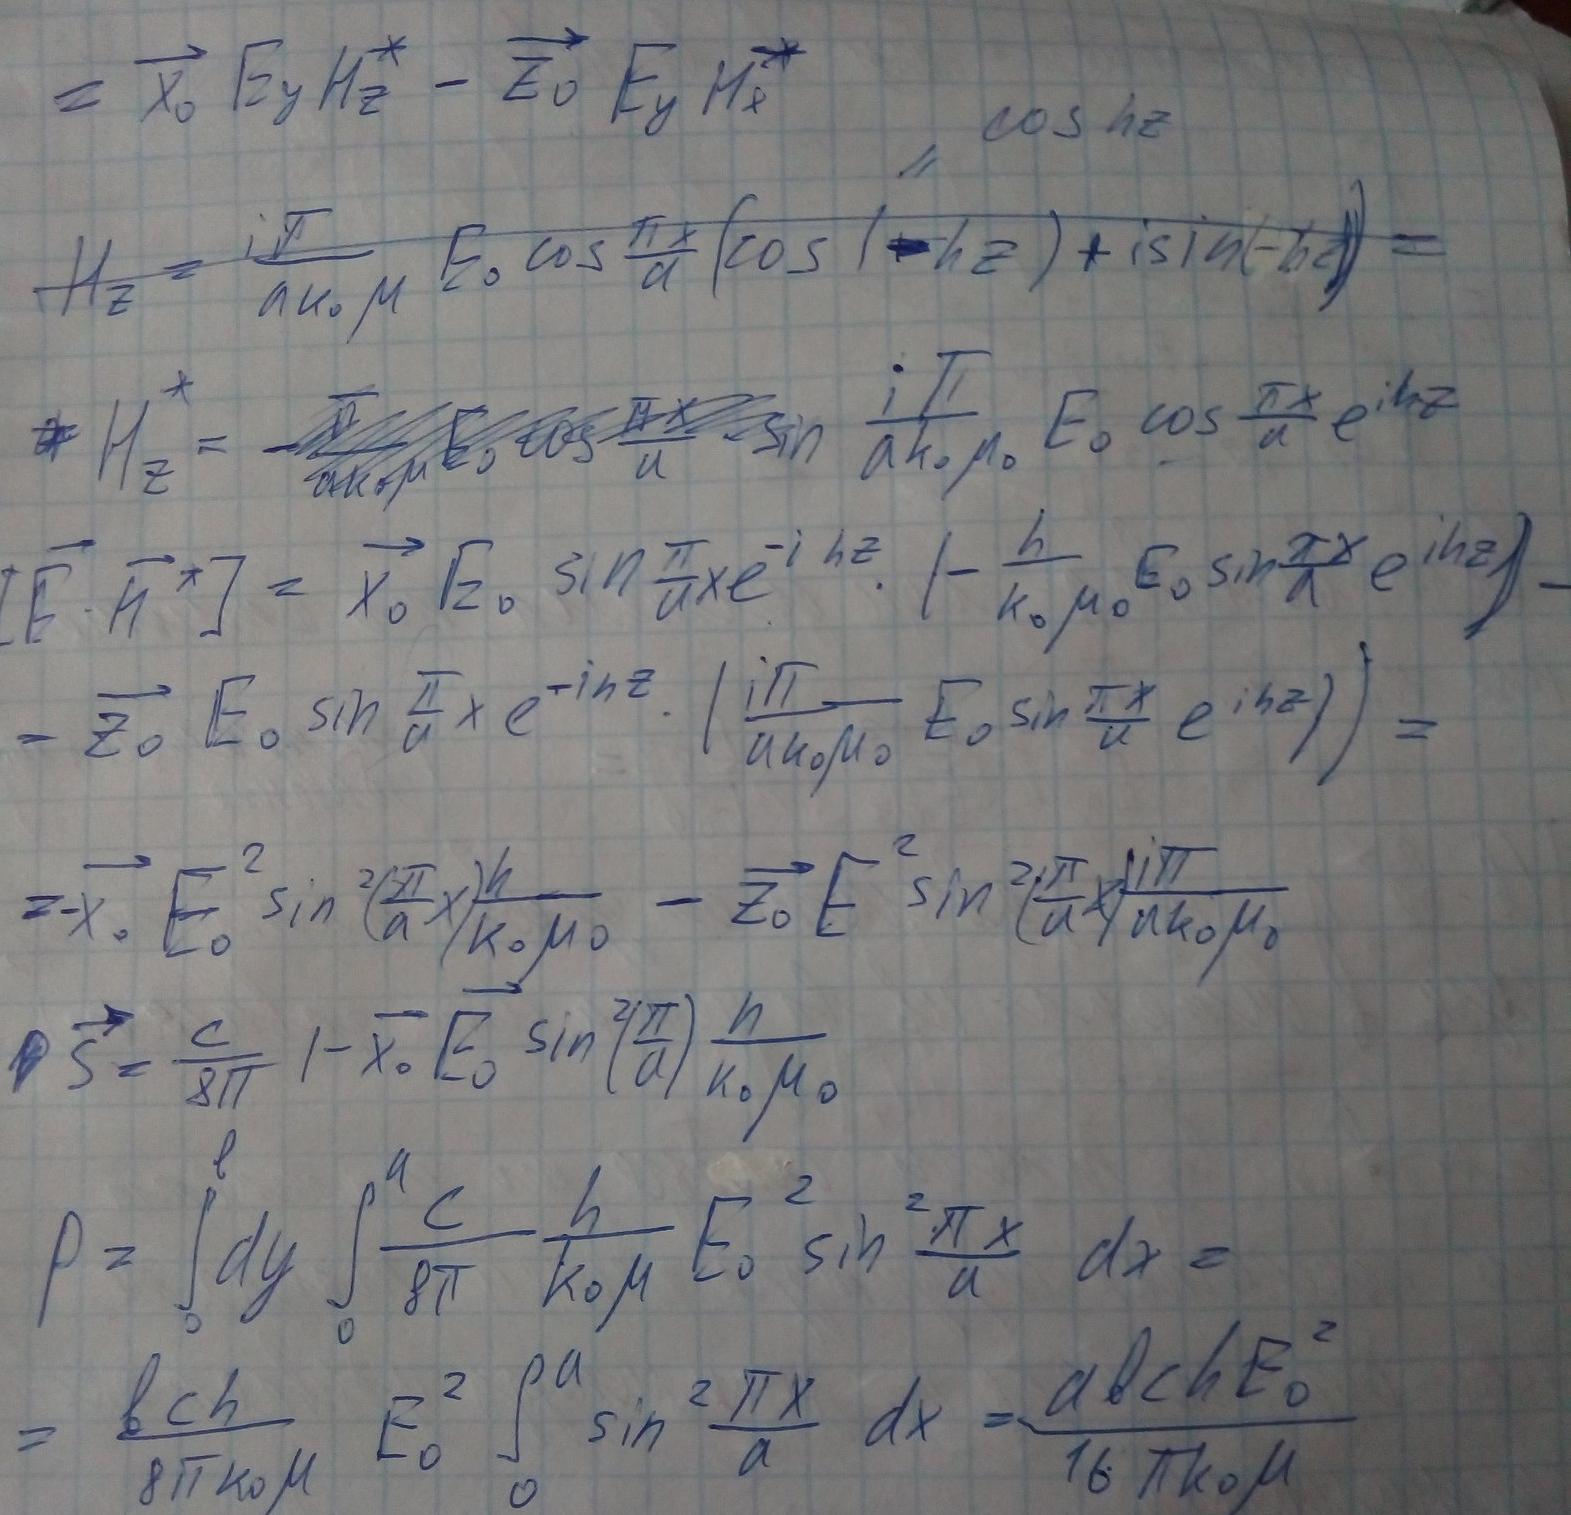 = x⃗₀ E_y H_z^* - z⃗₀ E_y H_x^*
= cos hz
H_z = iπ/(aк₀μ) E₀ cos πx/a (cos(-hz) + i sin(-hz)) =
H_z^* = - π/(aк₀μ) E₀ cos πx/a sin iπ/(aк₀μ₀) E₀ cos πx/a e^{ihz}
[E⃗ · H⃗^*] = x⃗₀ E₀ sin π/a x e^{-ihz} · (- h/(к₀μ₀) E₀ sin πx/a e^{ihz}) -
- z⃗₀ E₀ sin π/a x e^{-ihz} · (iπ/(aк₀μ₀) E₀ sin πx/a e^{ihz})) =
= -x⃗₀ E₀² sin²(π/a x) h/(к₀μ₀) - z⃗₀ E² sin²(π/a x) iπ/(aк₀μ₀)
S⃗ = c/8π (- x⃗₀ E⃗₀ sin²(π/a) h/(к₀μ₀)
P = ∫₀^в dy ∫₀^a c/8π h/(к₀μ) E₀² sin² πx/a dx =
= вch/(8πк₀μ) E₀² ∫₀^a sin² πx/a dx = aвchE₀²/(16πк₀μ)